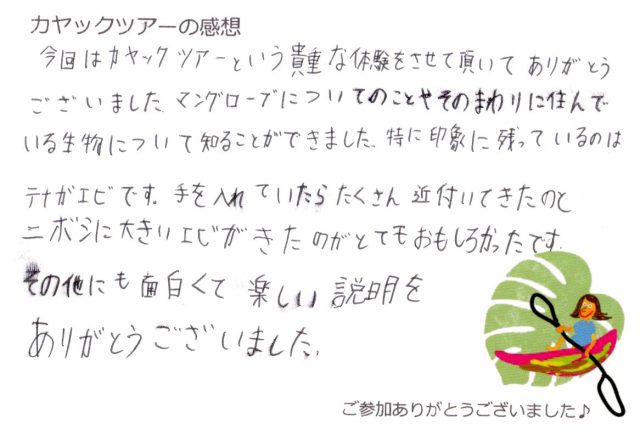 カヤックツアーの感想
今回はカヤックツアーという貴重な体験をさせて頂いてありがとう
ございました。マングローブについてのことやそのまわりに住んで
いる生物について知ることができました。特に印象に残っているのは
テナガエビです。手を入れていたらたくさん近付いてきたのと
ニボシに大きいエビがきたのがとてもおもしろかったです。
その他にも面白くて楽しい説明を
ありがとうございました。
ご参加ありがとうございました♪